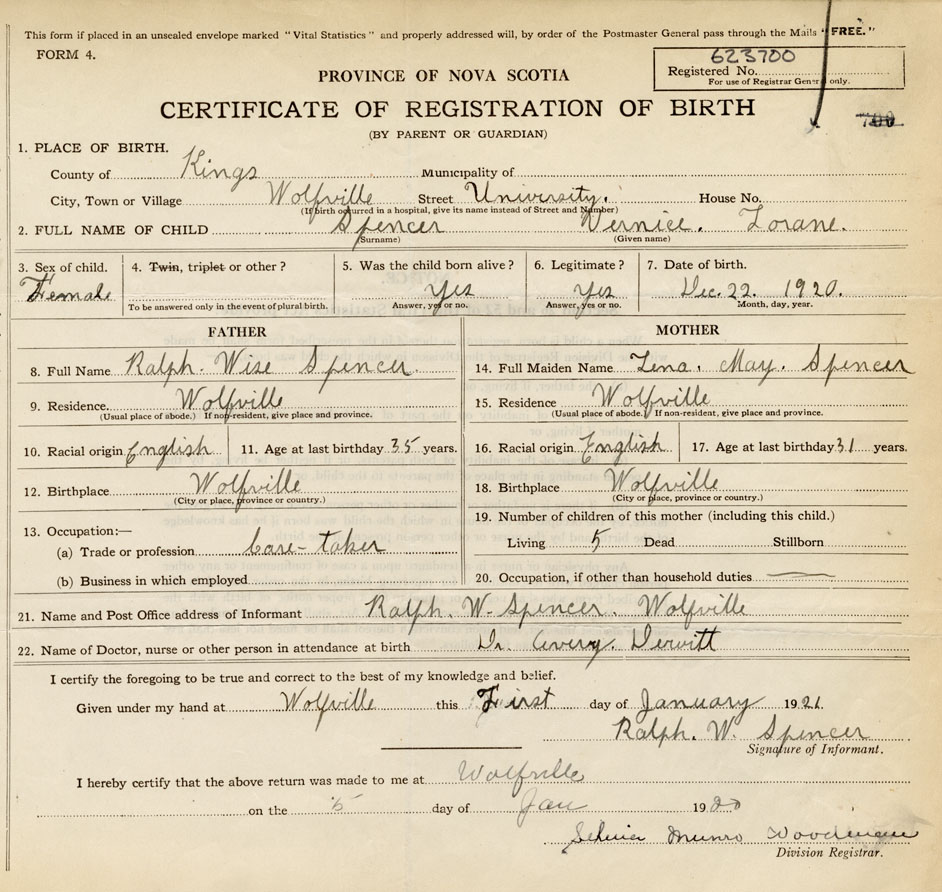 This form if placed in an unsealed envelope marked "Vital Statistics" and properly addressed will, by order of the Postmaster General pass through the Mails "FREE."
FORM 4.
623700
Registered No.
For use of Registrar General only.
PROVINCE OF NOVA SCOTIA
CERTIFICATE OF REGISTRATION OF BIRTH
(BY PARENT OR GUARDIAN)
1. PLACE OF BIRTH.
County of Kings Municipality of
City, Town or Village Wolfville Street University. House No.
(If birth occurred in a hospital, give its name instead of Street and Number)
2. FULL NAME OF CHILD Spencer Vernice. Lorane.
(Surname) (Given name)
3. Sex of child. 4. Twin, triplet or other? 5. Was the child born alive? 6. Legitimate? 7. Date of birth.
Female Yes Yes Dec. 22. 1920.
To be answered only in the event of plural birth. Answer, yes or no. Answer, yes or no. Month, day, year.
FATHER
8. Full Name Ralph. Wise Spencer.
9. Residence. Wolfville
(Usual place of abode.) If non-resident, give place and province.
10. Racial origin English 11. Age at last birthday 35 years.
12. Birthplace Wolfville
(City or place, province or country.)
13. Occupation:—
(a) Trade or profession Care-taker
(b) Business in which employed
MOTHER
14. Full Maiden Name Lena. May. Spencer
15. Residence Wolfville
(Usual place of abode. If non-resident, give place and province.
16. Racial origin English 17. Age at last birthday 31 years.
18. Birthplace Wolfville
(City or place, province or country.)
19. Number of children of this mother (including this child.)
Living 5 Dead Stillborn
20. Occupation, if other than household duties
21. Name and Post Office address of Informant Ralph. W. Spencer. Wolfville
22. Name of Doctor, nurse or other person in attendance at birth Dr. Avery. Dewitt
I certify the foregoing to be true and correct to the best of my knowledge and belief.
Given under my hand at Wolfville this First day of January 1921.
Ralph. W. Spencer
Signature of Informant.
I hereby certify that the above return was made to me at Wolfville
on the 5 day of Jan 19
Munro Woodman
Division Registrar.